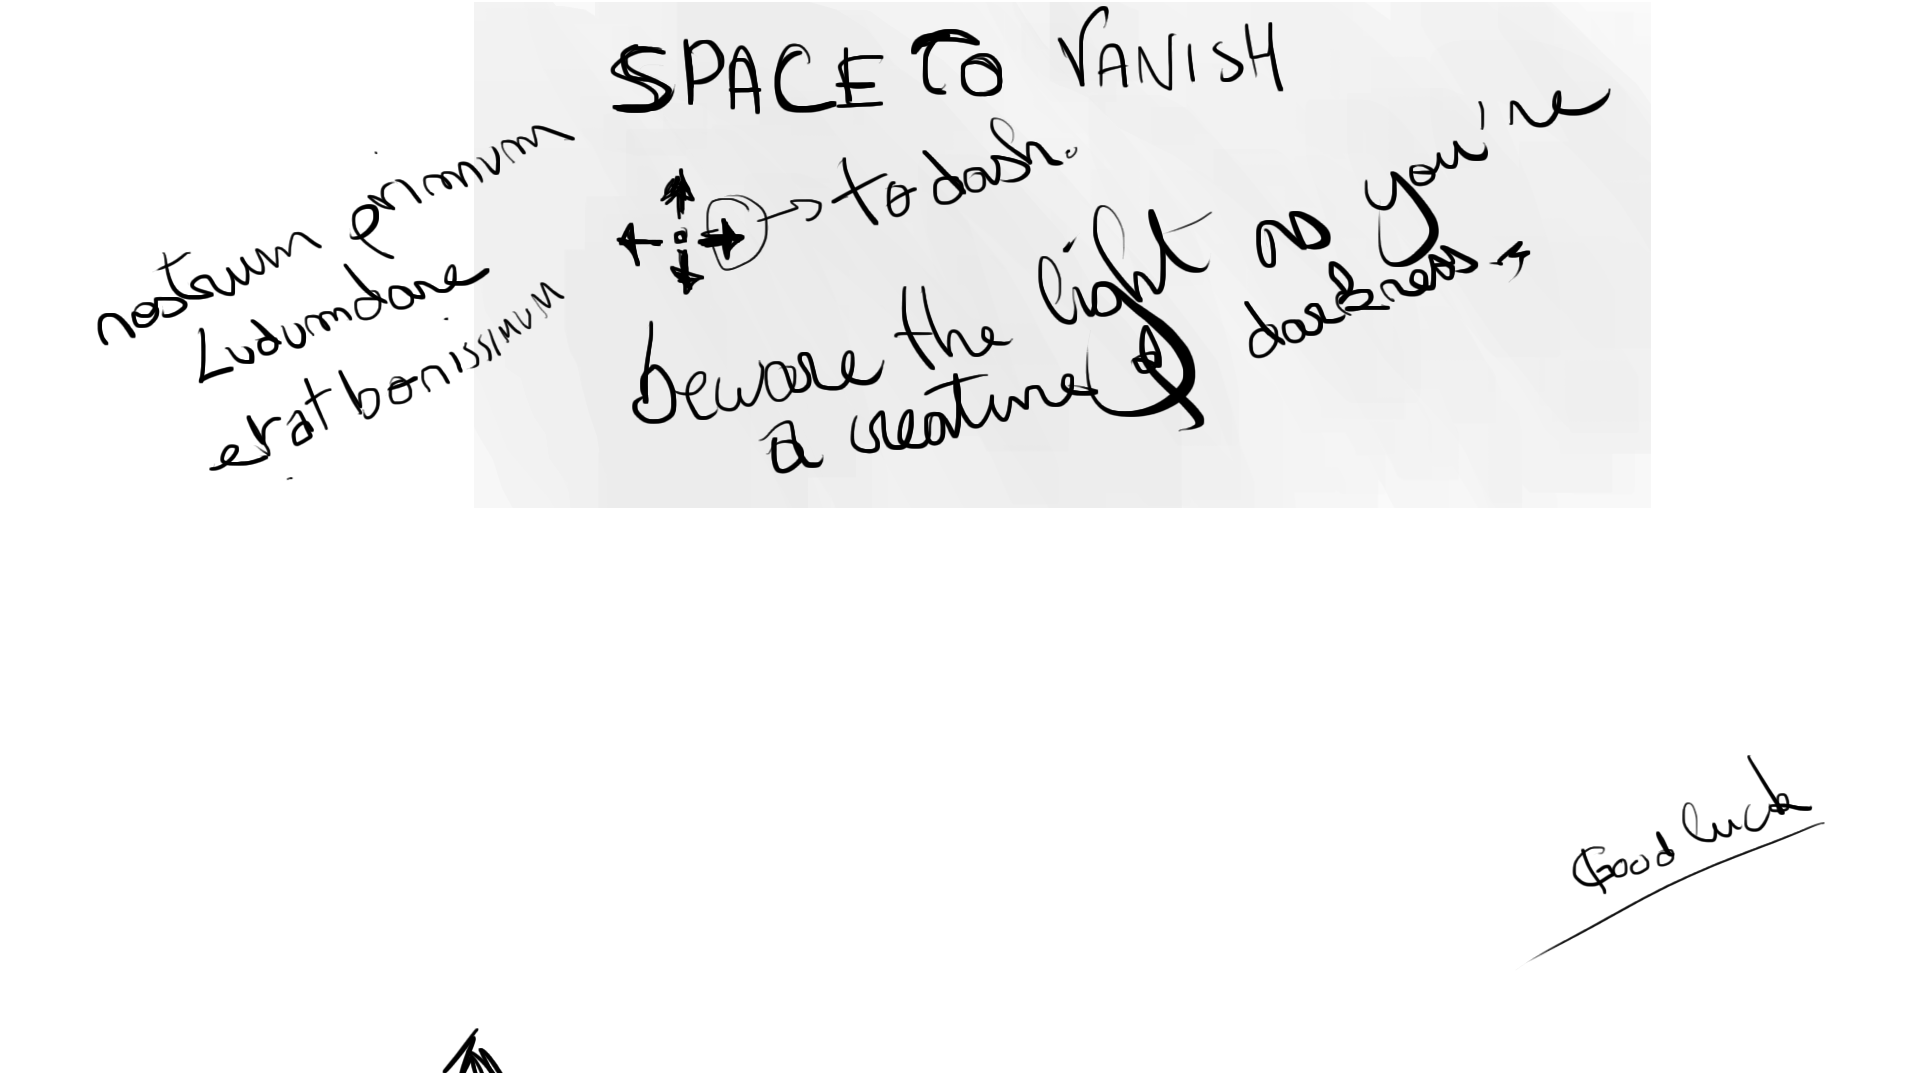 SPACE TO VANISH
to dash.
beware the light as you're
a creature of darkness
nostrum primum
Ludumdare
erat bonissimum
Good luck